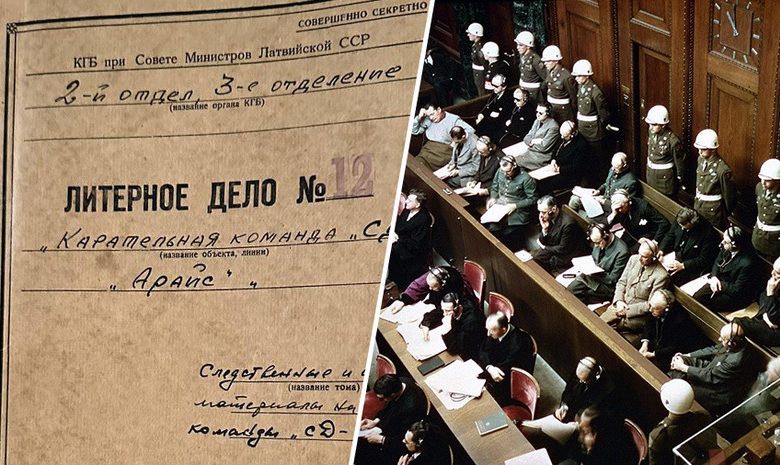 СОВЕРШЕННО СЕКРЕТНО
КГБ при Совете Министров Латвийской ССР
2-й отдел, 3-е отделение
(название органа КГБ)
ЛИТЕРНОЕ ДЕЛО № 12
"Карательная команда "СД
(название объекта, линии)
"Арайс" "
Следственные и
(название тома)
материалы на
команды "СД-